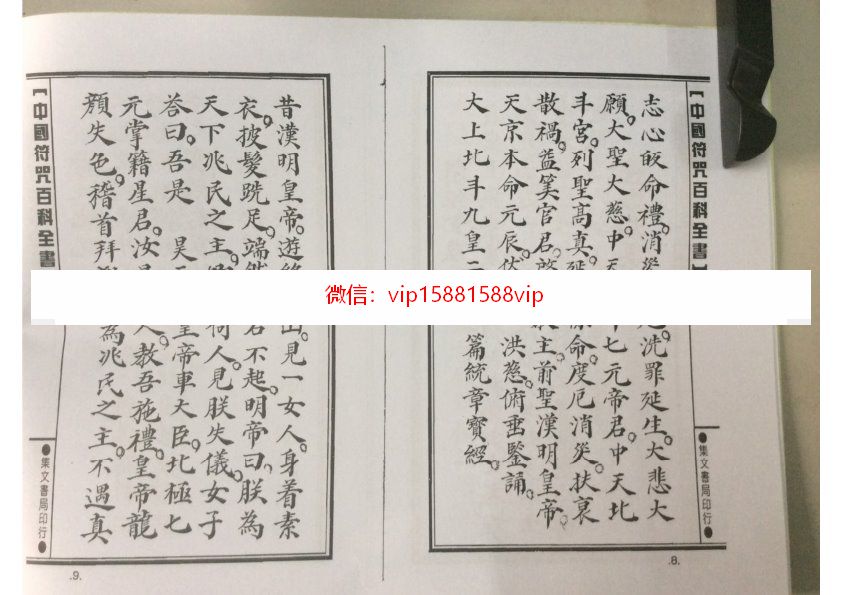 【中國符咒百科全書】
●集文書局印行●
志心皈命禮。消災洗罪延生。大悲大
願。大聖大慈中天七元帝君。中天北
斗宮。列聖高真。延命。度厄消災。扶衰
散禍。益筭官君。主。前聖漢明皇帝
天京本命元辰。伏洪慈。俯垂鑒誦。
大上北斗九皇二篇統章寶經。
.8.
昔漢明皇帝。遊山。見一女人。身着素
衣。披髮跣足。端然不起。明帝曰。朕為
天下兆民之主。何人。見朕失儀。女子
荅曰。吾是 昊皇帝車大臣。北極七
元掌籍星君。汝人。教吾施禮。皇帝龍
顏失色。稽首拜為兆民之主。不遇真
【中國符咒百科全書
●集文書局印行●
.9.
微信：vip15881588vip